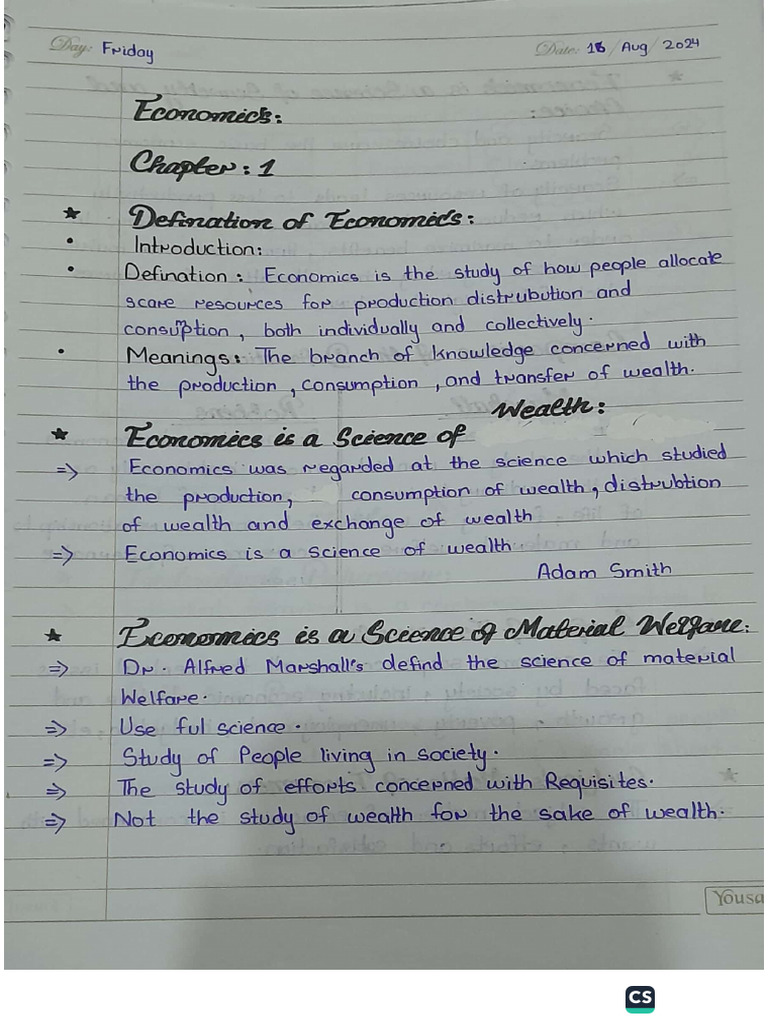 Day: Friday Date: 16 / Aug / 2024
Economics: :
Chapter: 1
★ Defination of Economics:
• Introduction:
• Defination: Economics is the study of how people allocate
scare resources for production distrubution and
consuption, both individually and collectively.
• Meanings: The branch of knowledge concerned with
the production, consumption, and transfer of wealth.
Wealth:
★ Economics is a Science of
⇒ Economics was regarded at the science which studied
the production, consumption of wealth, distrubtion
of wealth and exchange of wealth
⇒ Economics is a science of wealth
Adam Smith
★ Economics is a Science of Material Welfare:
⇒ Dr. Alfred Marshall's defind the science of material
Welfare.
⇒ Use ful science.
⇒ Study of People living in society.
⇒ The study of efforts concerned with Requisites.
⇒ Not the study of wealth for the sake of wealth.
Yousa
CS